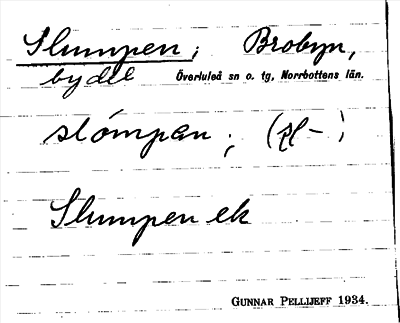 Slumpen; Brobyn,
bydel Överluleå sn o. tg, Norrbottens län.
slómpan; (pl-)
Slumpen ek
GUNNAR PELLIJEFF 1934.